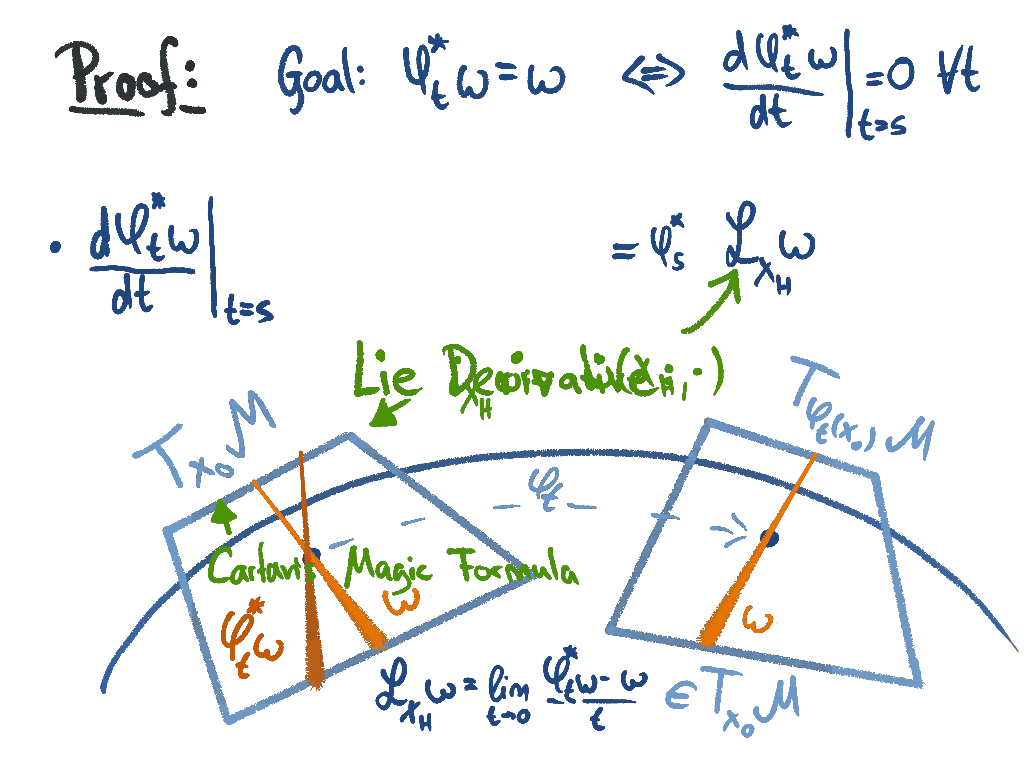 Proof: Goal: φ_t^* ω = ω ⇔ dφ_t^* ω / dt |_{t=s} = 0 ∀t
• dφ_t^* ω / dt |_{t=s} = φ_s^* ℒ_{X_H} ω
Lie
T_{x_0} M T_{φ_t(x_0)} M
φ_t
Cartan's Magic Formula
φ_t^* ω ω ω
ℒ_{X_H} ω = lim_{t→0} φ_t^* ω - ω / t ∈ T_{x_0} M